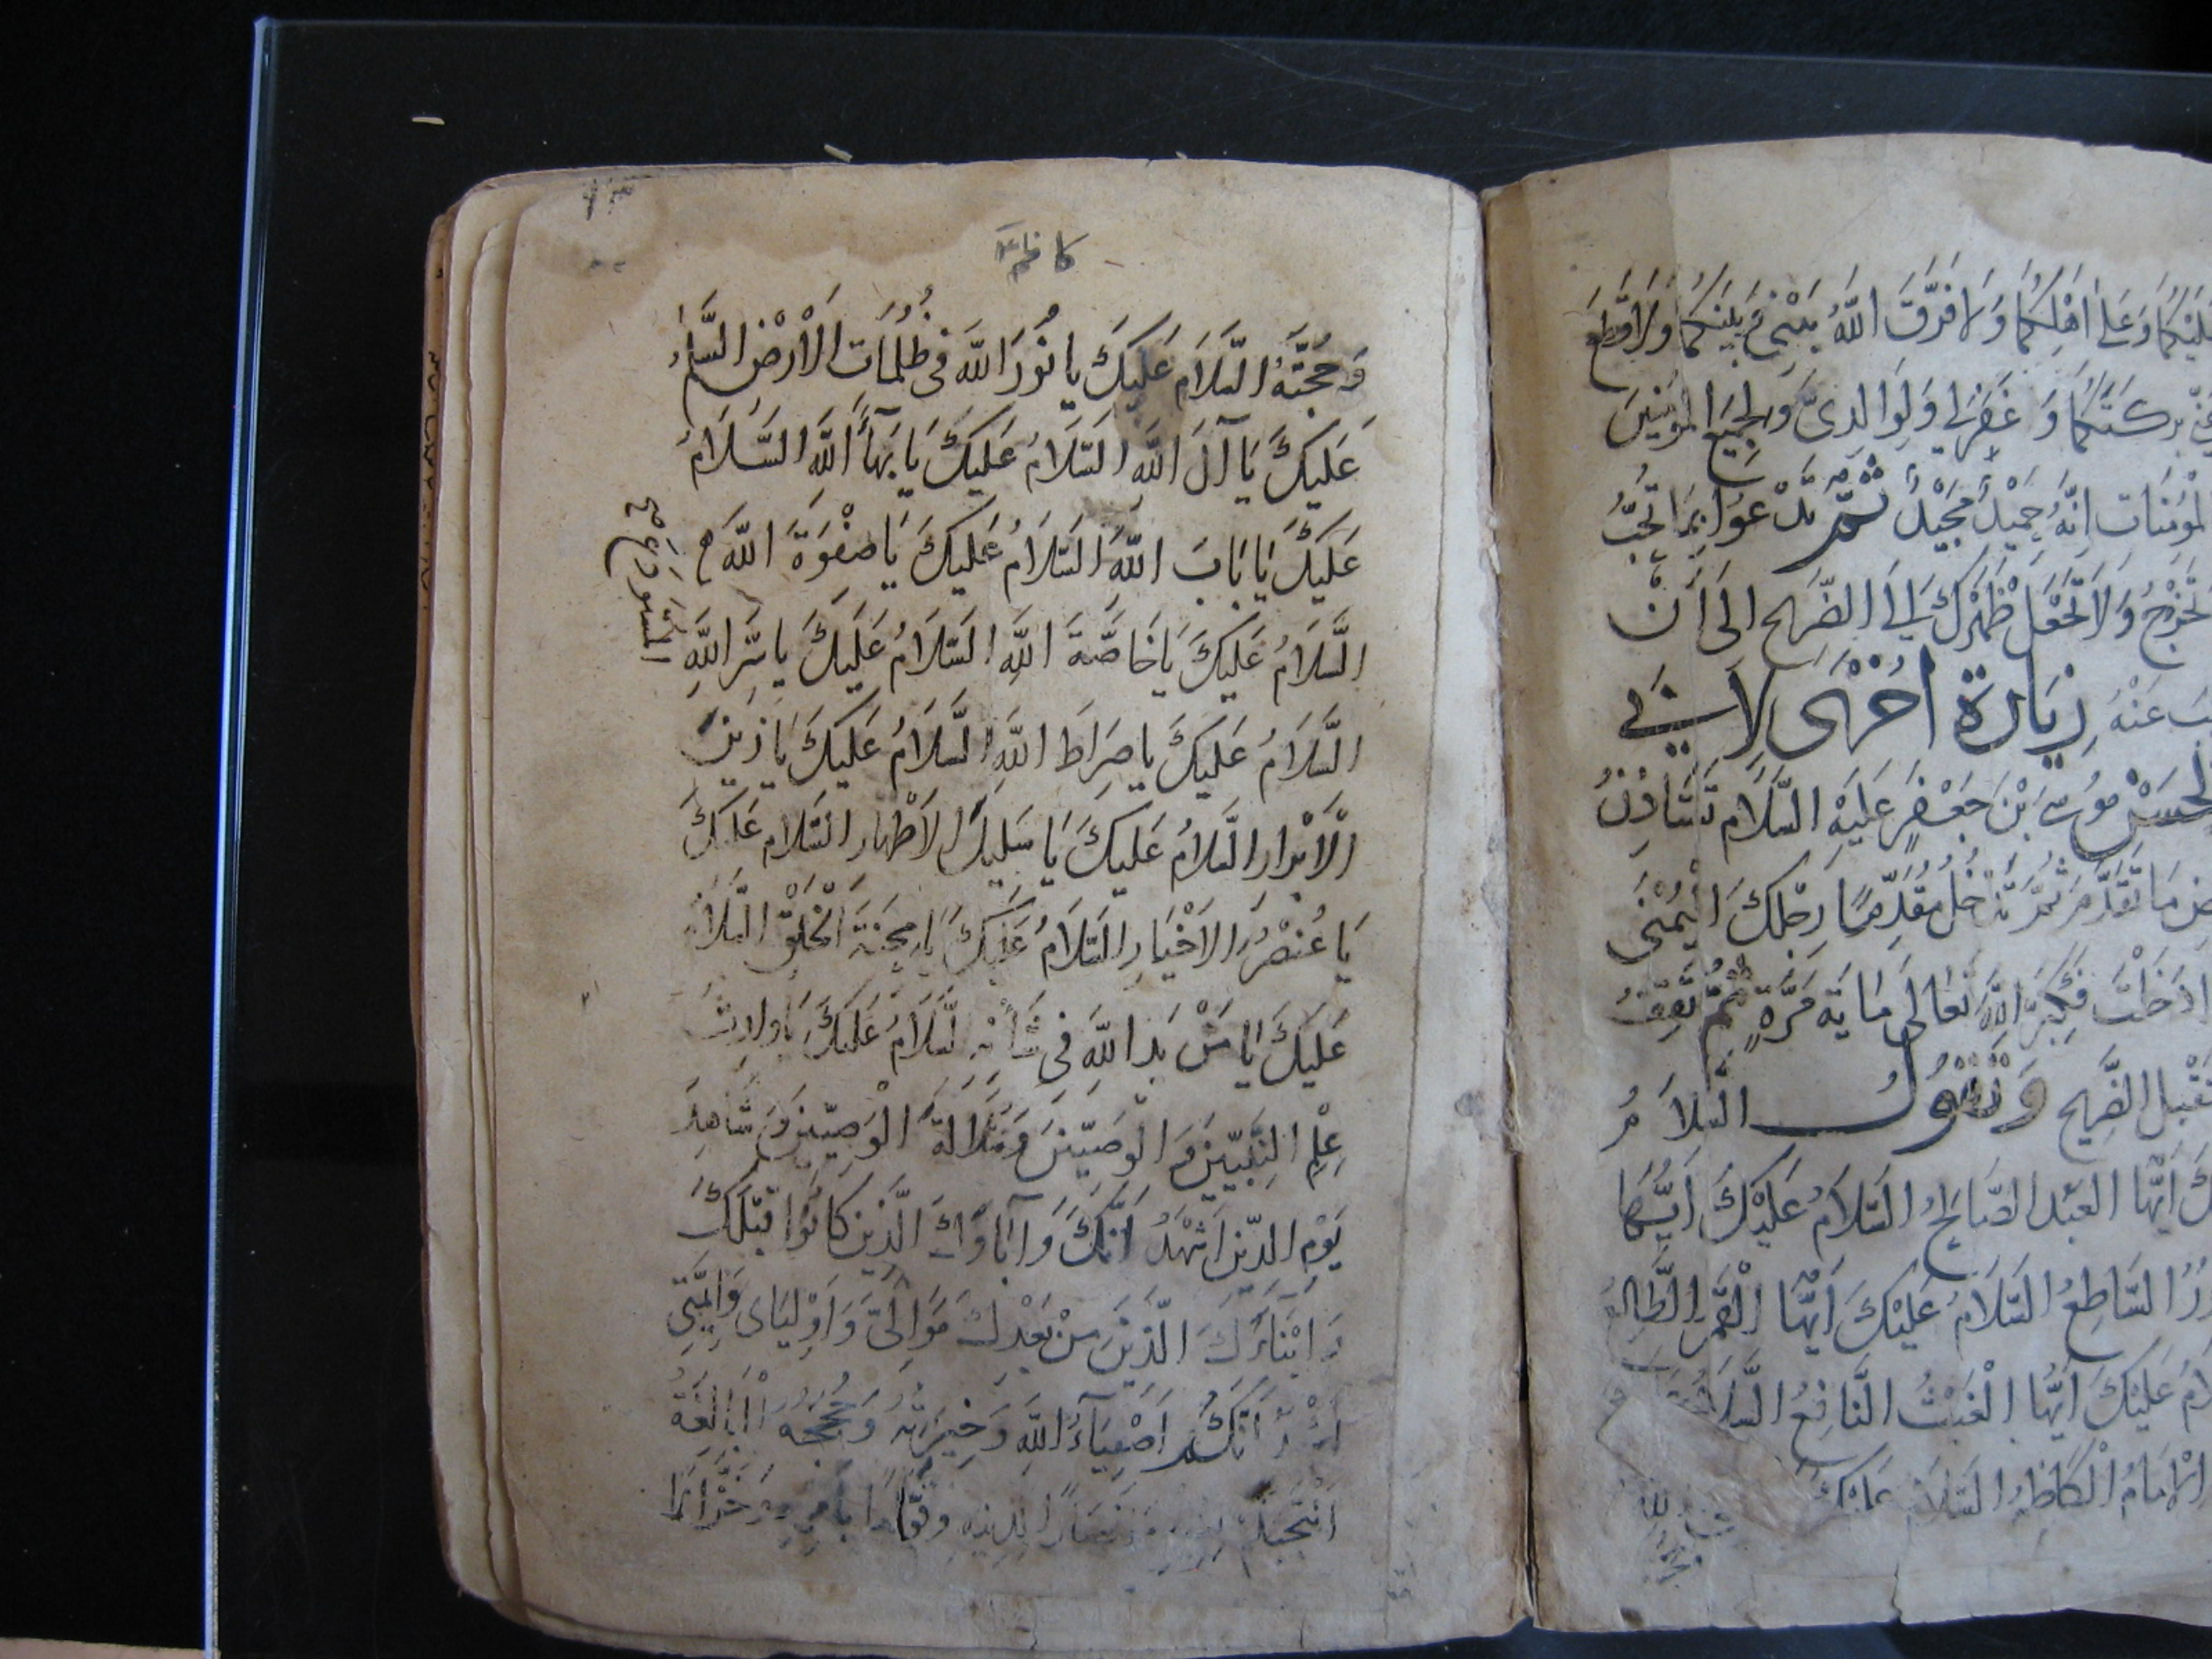 ليكما وعلى اهلكما ولا فرق الله بيني وبينكما ولا قطع
عني بركتكما وغفر لي ولوالدي ولجميع المؤمنين
المؤمنات انه حميد مجيد ثم تدعوا بما تحب
تخرج ولا تجعل ظهرك الى الضريح الى ان
عنه زيارة اخرى لابي
الحسن موسى ابن جعفر عليه السلام تستاذن
ما تقدم ثم تدخل مقدما رجلك اليمنى
اذا دخلت فكبر الله تعالى ماية مرة ثم تقف
الضريح وتقول السلام
ايها العبد الصالح السلام عليك ايها
الساطع السلام عليك ايها القمر الطالع
عليك ايها الغيث النافع السلام
الامام الكاظم السلام عليك
كاظم
وحجته السلام عليك يا نور الله في ظلمات الارض السلام
عليك يا آل الله السلام عليك يا بهاء الله السلام
عليك يا باب الله السلام عليك يا صفوة الله
السلام عليك يا خاصة الله السلام عليك يا سر الله
السلام عليك يا صراط الله السلام عليك يا زين
الابرار السلام عليك يا سليل الاطهار السلام عليك
يا عنصر الاخيار السلام عليك يا محنة الخلق السلام
عليك يا من بدا لله في شانه السلام عليك يا وارث
علم النبيين والوصيين وسلالة الوصيين وشاهد
يوم الدين اشهد انك وآباؤك الذين كانوا قبلك
وابناءك الذين من بعدك موالي واوليائي وائمتي
انكم اصفياء الله وخيرته وحججه البالغة
انتجبكم لدينه وقواما